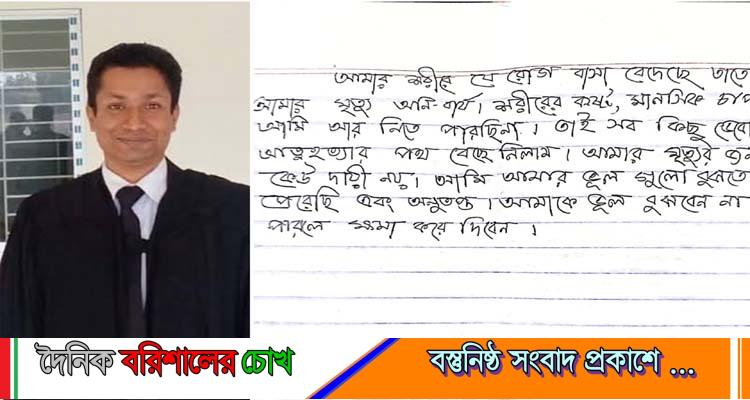 আমার শরীরে যে রোগ বাসা বেধেছে তাতে
আমার মৃত্যু অনিবার্য। শরীরের কষ্ট, মানসিক চাপ
আমি আর নিতে পারছিনা। তাই সব কিছু ভেবে
আত্মহত্যার পথ বেছে নিলাম। আমার মৃত্যুর জন্য
কেউ দায়ী নয়। আমি আমার ভুল গুলো বুঝতে
পেরেছি এবং অনুতপ্ত। আমাকে ভুল বুঝবেন না
পারলে ক্ষমা করে দিবেন।
দৈনিক বরিশালের চোখ
বস্তুনিষ্ঠ সংবাদ প্রকাশে ...